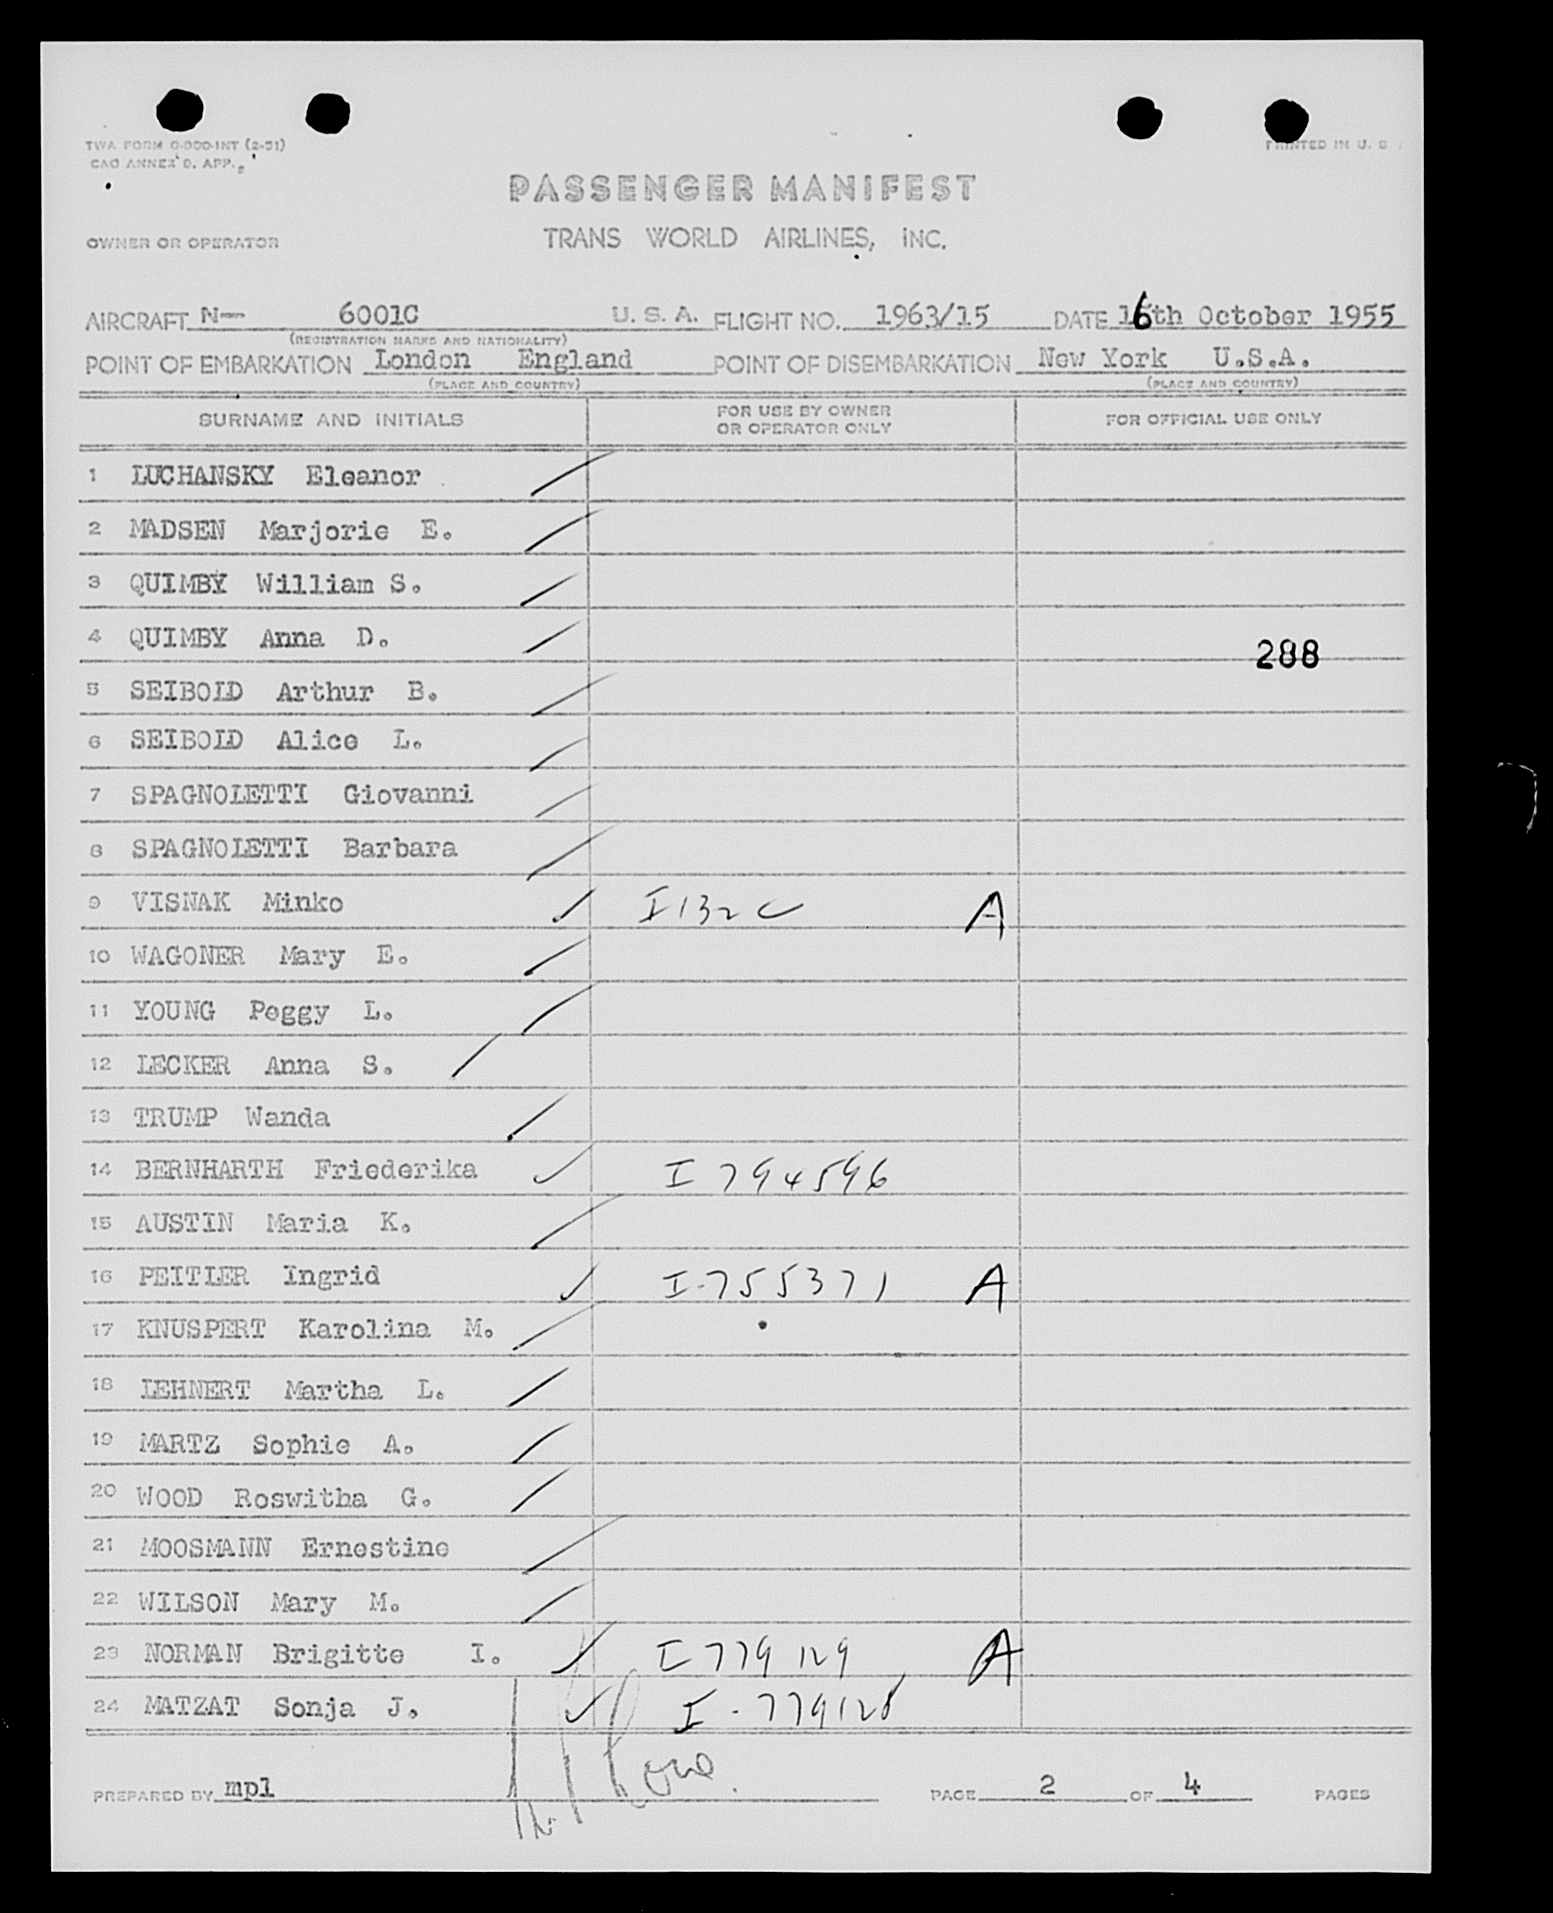 TWA FORM 0-000-INT (2-51)
PRINTED IN U. S.
PASSENGER MANIFEST
OWNER OR OPERATOR TRANS WORLD AIRLINES, INC.
AIRCRAFT N— 6001C U. S. A. FLIGHT NO. 1963/15 DATE 16th October 1955
(REGISTRATION MARKS AND NATIONALITY)
POINT OF EMBARKATION London England POINT OF DISEMBARKATION New York U.S.A.
(PLACE AND COUNTRY) (PLACE AND COUNTRY)
SURNAME AND INITIALS FOR USE BY OWNER OR OPERATOR ONLY FOR OFFICIAL USE ONLY
1 LUCHANSKY Eleanor
2 MADSEN Marjorie E.
3 QUIMBY William S.
4 QUIMBY Anna D.
288
5 SEIBOLD Arthur B.
6 SEIBOLD Alice L.
7 SPAGNOLETTI Giovanni
8 SPAGNOLETTI Barbara
9 VISNAK Minko I 132 C A
10 WAGONER Mary E.
11 YOUNG Peggy L.
12 LECKER Anna S.
13 TRUMP Wanda
14 BERNHARTH Friederika I 794596
15 AUSTIN Maria K.
16 PEITLER Ingrid I-755371 A
17 KNUSPERT Karolina M.
18 LEHNERT Martha L.
19 MARTZ Sophie A.
20 WOOD Roswitha G.
21 MOOSMANN Ernestine
22 WILSON Mary M.
23 NORMAN Brigitte I. I 779129 A
24 MATZAT Sonja J. I-779128
PREPARED BY mpl PAGE 2 OF 4 PAGES